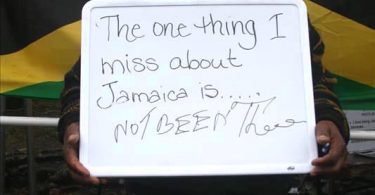 The one thing I
miss about
Jamaica is.....
NOT BEEN There